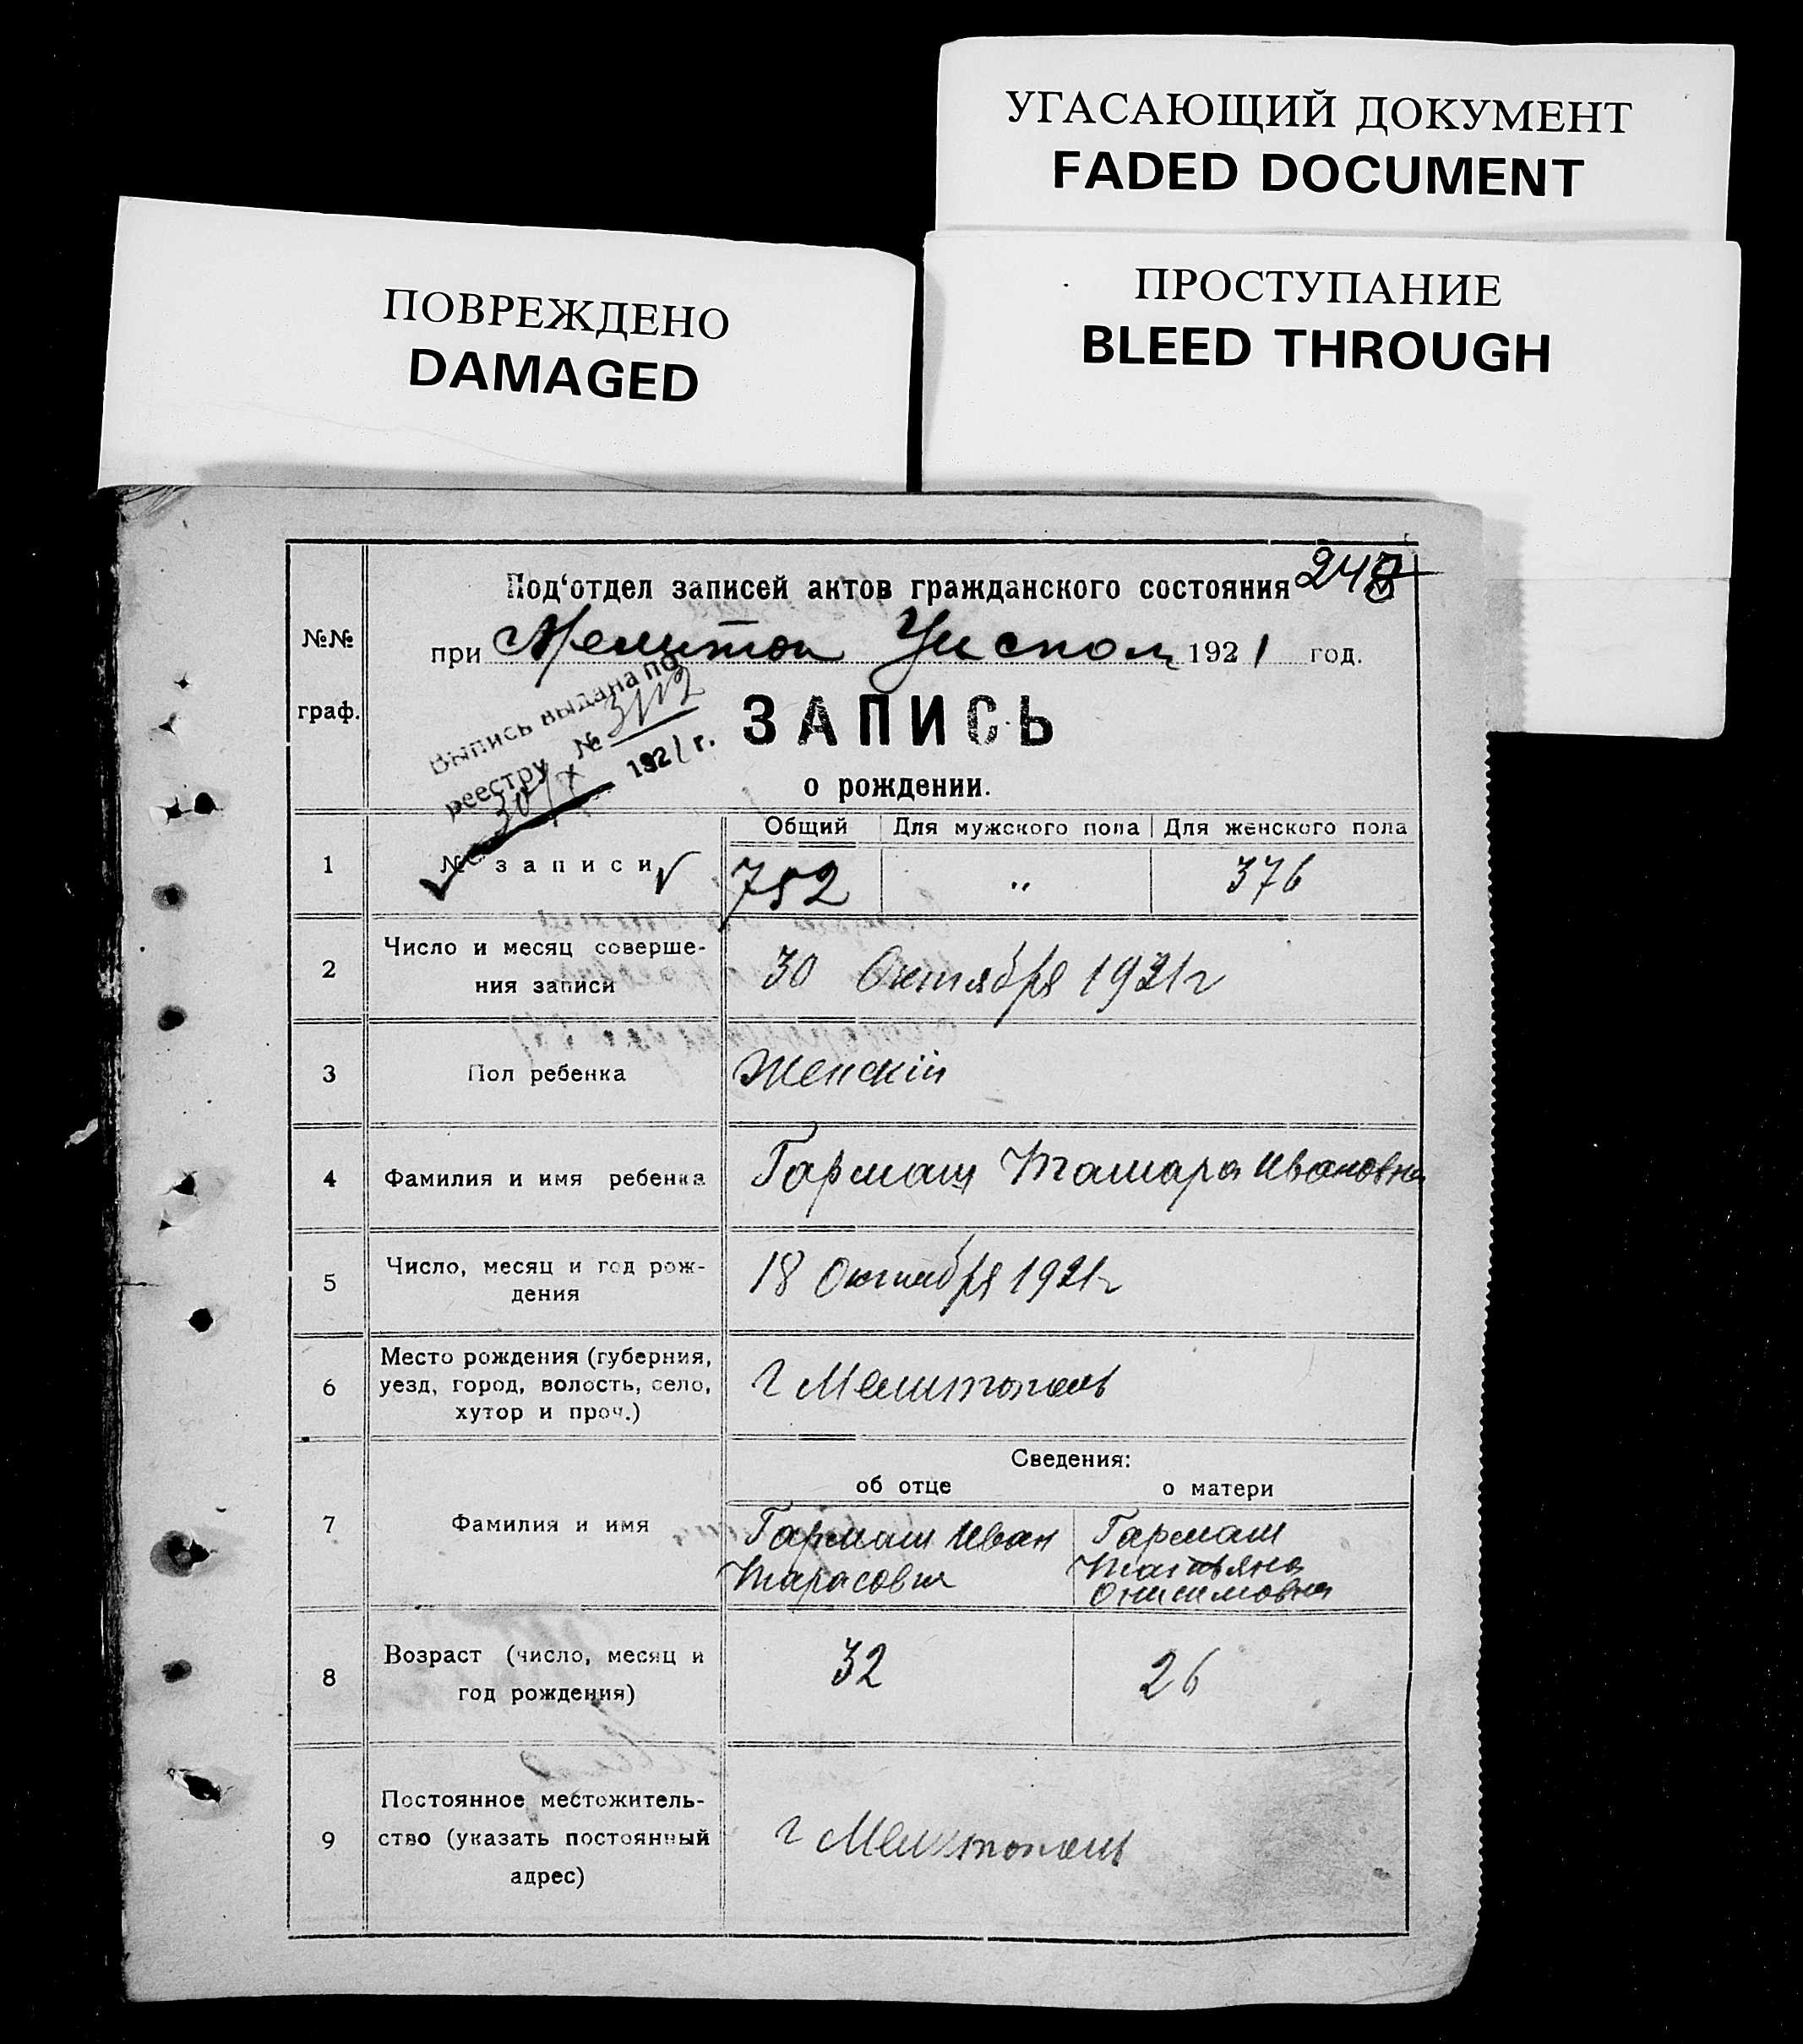 УГАСАЮЩИЙ ДОКУМЕНТ
FADED DOCUMENT
ПРОСТУПАНИЕ
BLEED THROUGH
ПОВРЕЖДЕНО
DAMAGED
Под'отдел записей актов гражданского состояния 24
№№ граф.
при Мелитоп Уиспол 1921 год.
Выпись выдана по
реестру № 3112
30/X 1921 г.
ЗАПИСЬ
о рождении.
Общий Для мужского пола Для женского пола
1 № записи 752 „ 376
2 Число и месяц соверше-
ния записи 30 Октября 1921г
3 Пол ребенка Женскiй
4 Фамилия и имя ребенка Гармаш Тамара Ивановна
5 Число, месяц и год рож-
дения 18 Октября 1921г
6 Место рождения (губерния,
уезд, город, волость, село,
хутор и проч.) г Мелитополь
Сведения:
об отце о матери
7 Фамилия и имя Гармаш Иван Гармаш
Тарасович Татьяна
Онисимовна
8 Возраст (число, месяц и
год рождения) 32 26
9 Постоянное местожитель-
ство (указать постоянный
адрес) г Мелитополь